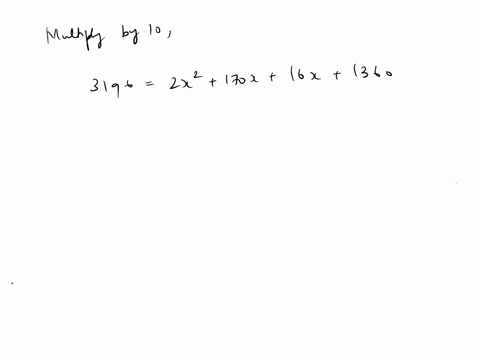 Multiply by 10,
3196 = 2x² + 170x + 16x + 1360